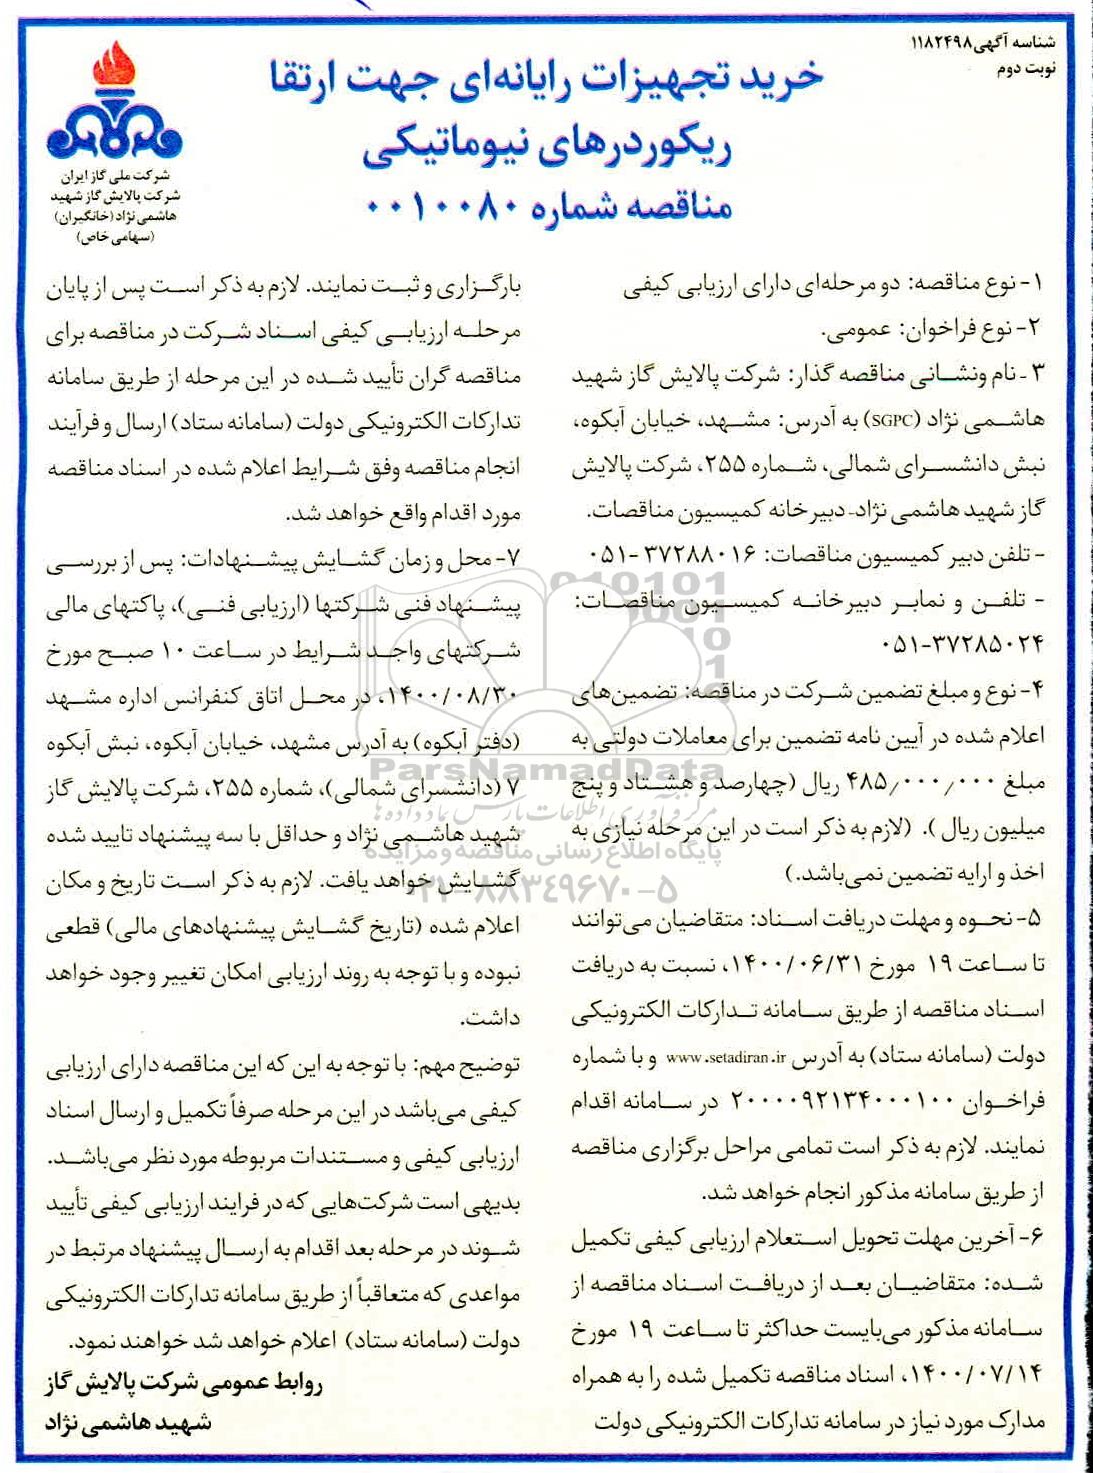 شناسه آگهی ۱۱۸۲۴۹۸
نوبت دوم
خرید تجهیزات رایانه‌ای جهت ارتقا
ریکوردرهای نیوماتیکی
مناقصه شماره ۰۰۱۰۰۸۰
شرکت ملی گاز ایران
شرکت پالایش گاز شهید
هاشمی نژاد (خانگیران)
(سهامی خاص)
۱- نوع مناقصه: دو مرحله‌ای دارای ارزیابی کیفی
۲- نوع فراخوان: عمومی.
۳- نام ونشانی مناقصه گذار: شرکت پالایش گاز شهید
هاشمی نژاد (SGPC) به آدرس: مشهد، خیابان آبکوه،
نبش دانشسرای شمالی، شماره ۲۵۵، شرکت پالایش
گاز شهید هاشمی نژاد- دبیرخانه کمیسیون مناقصات.
- تلفن دبیر کمیسیون مناقصات: ۳۷۲۸۸۰۱۶-۰۵۱
- تلفن و نمابر دبیرخانه کمیسیون مناقصات:
۰۵۱-۳۷۲۸۵۰۲۴
۴- نوع و مبلغ تضمین شرکت در مناقصه: تضمین‌های
اعلام شده در آیین نامه تضمین برای معاملات دولتی به
مبلغ ۴۸۵٫۰۰۰٫۰۰۰ ریال (چهارصد و هشتاد و پنج
میلیون ریال ). (لازم به ذکر است در این مرحله نیازی به
اخذ و ارایه تضمین نمی‌باشد.)
۵- نحوه و مهلت دریافت اسناد: متقاضیان می‌توانند
تا ساعت ۱۹ مورخ ۱۴۰۰/۰۶/۳۱، نسبت به دریافت
اسناد مناقصه از طریق سامانه تدارکات الکترونیکی
دولت (سامانه ستاد) به آدرس www.setadiran.ir و با شماره
فراخوان ۲۰۰۰۰۹۲۱۳۴۰۰۰۱۰۰ در سامانه اقدام
نمایند. لازم به ذکر است تمامی مراحل برگزاری مناقصه
از طریق سامانه مذکور انجام خواهد شد.
۶- آخرین مهلت تحویل استعلام ارزیابی کیفی تکمیل
شده: متقاضیان بعد از دریافت اسناد مناقصه از
سامانه مذکور می‌بایست حداکثر تا ساعت ۱۹ مورخ
۱۴۰۰/۰۷/۱۴، اسناد مناقصه تکمیل شده را به همراه
مدارک مورد نیاز در سامانه تدارکات الکترونیکی دولت
بارگزاری و ثبت نمایند. لازم به ذکر است پس از پایان
مرحله ارزیابی کیفی اسناد شرکت در مناقصه برای
مناقصه گران تأیید شده در این مرحله از طریق سامانه
تدارکات الکترونیکی دولت (سامانه ستاد) ارسال و فرآیند
انجام مناقصه وفق شرایط اعلام شده در اسناد مناقصه
مورد اقدام واقع خواهد شد.
۷- محل و زمان گشایش پیشنهادات: پس از بررسی
پیشنهاد فنی شرکتها (ارزیابی فنی)، پاکتهای مالی
شرکتهای واجد شرایط در ساعت ۱۰ صبح مورخ
۱۴۰۰/۰۸/۳۰، در محل اتاق کنفرانس اداره مشهد
(دفتر آبکوه) به آدرس مشهد، خیابان آبکوه، نبش آبکوه
۷ (دانشسرای شمالی)، شماره ۲۵۵، شرکت پالایش گاز
شهید هاشمی نژاد و حداقل با سه پیشنهاد تایید شده
گشایش خواهد یافت. لازم به ذکر است تاریخ و مکان
اعلام شده (تاریخ گشایش پیشنهادهای مالی) قطعی
نبوده و با توجه به روند ارزیابی امکان تغییر وجود خواهد
داشت.
توضیح مهم: با توجه به این که این مناقصه دارای ارزیابی
کیفی می‌باشد در این مرحله صرفاً تکمیل و ارسال اسناد
ارزیابی کیفی و مستندات مربوطه مورد نظر می‌باشد.
بدیهی است شرکت‌هایی که در فرایند ارزیابی کیفی تأیید
شوند در مرحله بعد اقدام به ارسال پیشنهاد مرتبط در
مواعدی که متعاقباً از طریق سامانه تدارکات الکترونیکی
دولت (سامانه ستاد) اعلام خواهد شد خواهند نمود.
روابط عمومی شرکت پالایش گاز
شهید هاشمی نژاد
ParsNamadData
مرکز فرآوری اطلاعات پارس نماد داده‌ها
پایگاه اطلاع رسانی مناقصه و مزایده
۰۲۱-۸۸۳۴۹۶۷۰-۵